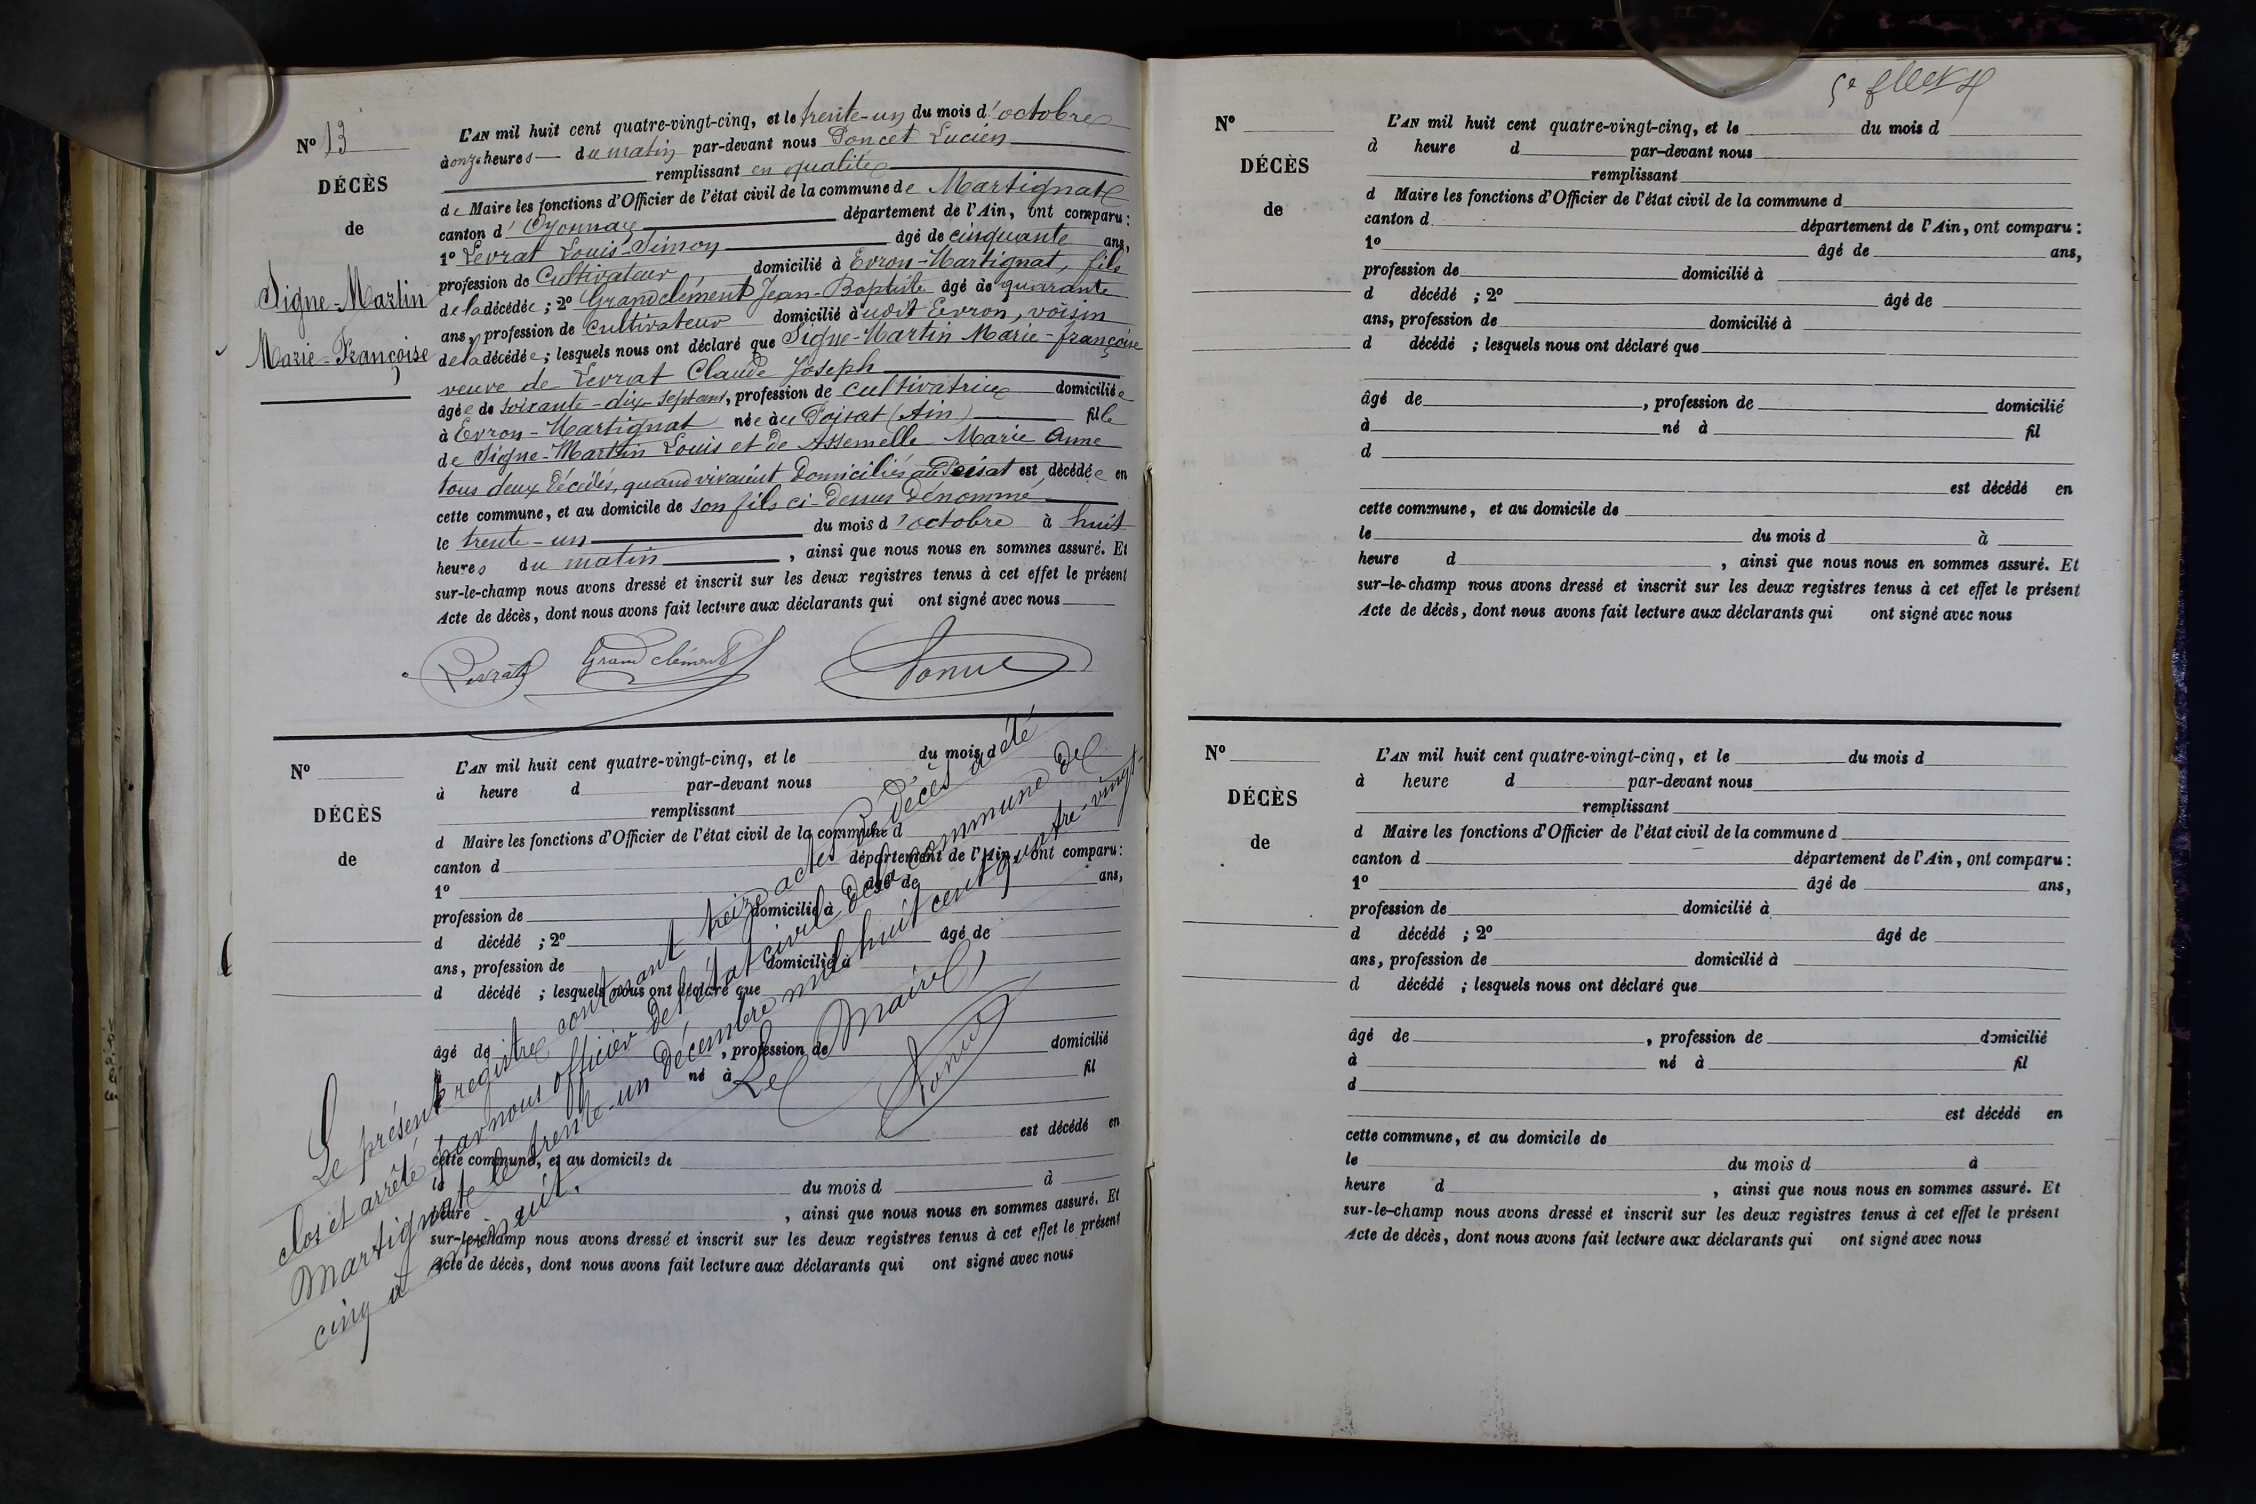 N° 13
DÉCÈS
de
Signe-Martin
Marie-Françoise
L'AN mil huit cent quatre-vingt-cinq, et le trente-un du mois d'octobre
à onze heures du matin par-devant nous Poncet Lucien
remplissant en qualité
de Maire les fonctions d'Officier de l'état civil de la commune de Martignat
canton d'Oyonnax département de l'Ain, ont comparu :
1° Levrat Louis-Simon âgé de cinquante ans,
profession de Cultivateur, domicilié à Evron-Martignat, fils
de la décédée ; 2° Grandclément Jean-Baptiste âgé de quarante
ans, profession de cultivateur domicilié à udit Evron, voisin
de la décédée ; lesquels nous ont déclaré que Signe-Martin Marie-françoise
veuve de Levrat Claude Joseph
âgée de soixante-dix-sept ans, profession de cultivatrice domiciliée
à Evron-Martignat née au Poisat (Ain) fille
de Signe-Martin Louis et de Assemelle Marie Anne
tous deux décédés, quand vivaient domiciliés au Poisat est décédée en
cette commune, et au domicile de son fils ci-dessus dénommé,
le trente-un du mois d'octobre à huit
heures du matin, ainsi que nous nous en sommes assuré. Et
sur-le-champ nous avons dressé et inscrit sur les deux registres tenus à cet effet le présent
Acte de décès, dont nous avons fait lecture aux déclarants qui ont signé avec nous
Levrat Grandclément
N°
DÉCÈS
de
L'AN mil huit cent quatre-vingt-cinq, et le du mois d
à heure d par-devant nous
remplissant
d Maire les fonctions d'Officier de l'état civil de la commune d
canton d département de l'Ain, ont comparu :
1° âgé de ans,
profession de domicilié à
d décédé ; 2° âgé de
ans, profession de domicilié à
d décédé ; lesquels nous ont déclaré que
âgé de , profession de domicilié
à né à fil
d
est décédé en
cette commune, et au domicile de
le du mois d à
heure d , ainsi que nous nous en sommes assuré. Et
sur-le-champ nous avons dressé et inscrit sur les deux registres tenus à cet effet le présent
Acte de décès, dont nous avons fait lecture aux déclarants qui ont signé avec nous
Le présent registre contenant treize actes de décès a été
clos et arrêté par nous officier de l'état civil de la commune de
Martignat le trente-un décembre mil huit cent quatre-vingt-
cinq à minuit.
Le Maire,
N°
DÉCÈS
de
L'AN mil huit cent quatre-vingt-cinq, et le du mois d
à heure d par-devant nous
remplissant
d Maire les fonctions d'Officier de l'état civil de la commune d
canton d département de l'Ain, ont comparu :
1° âgé de ans,
profession de domicilié à
d décédé ; 2° âgé de
ans, profession de domicilié à
d décédé ; lesquels nous ont déclaré que
âgé de , profession de domicilié
à né à fil
d
est décédé en
cette commune, et au domicile de
le du mois d à
heure d , ainsi que nous nous en sommes assuré. Et
sur-le-champ nous avons dressé et inscrit sur les deux registres tenus à cet effet le présent
Acte de décès, dont nous avons fait lecture aux déclarants qui ont signé avec nous
N°
DÉCÈS
de
L'AN mil huit cent quatre-vingt-cinq, et le du mois d
à heure d par-devant nous
remplissant
d Maire les fonctions d'Officier de l'état civil de la commune d
canton d département de l'Ain, ont comparu :
1° âgé de ans,
profession de domicilié à
d décédé ; 2° âgé de
ans, profession de domicilié à
d décédé ; lesquels nous ont déclaré que
âgé de , profession de domicilié
à né à fil
d
est décédé en
cette commune, et au domicile de
le du mois d à
heure d , ainsi que nous nous en sommes assuré. Et
sur-le-champ nous avons dressé et inscrit sur les deux registres tenus à cet effet le présent
Acte de décès, dont nous avons fait lecture aux déclarants qui ont signé avec nous